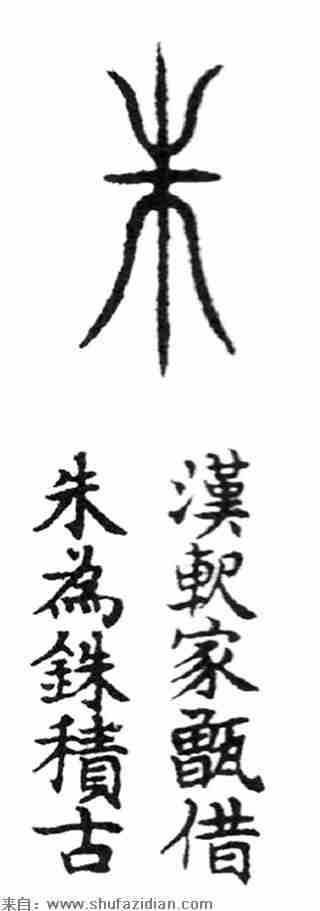 朱
漢軹家甑借
朱為銖積古
来自：www.shufazidian.com